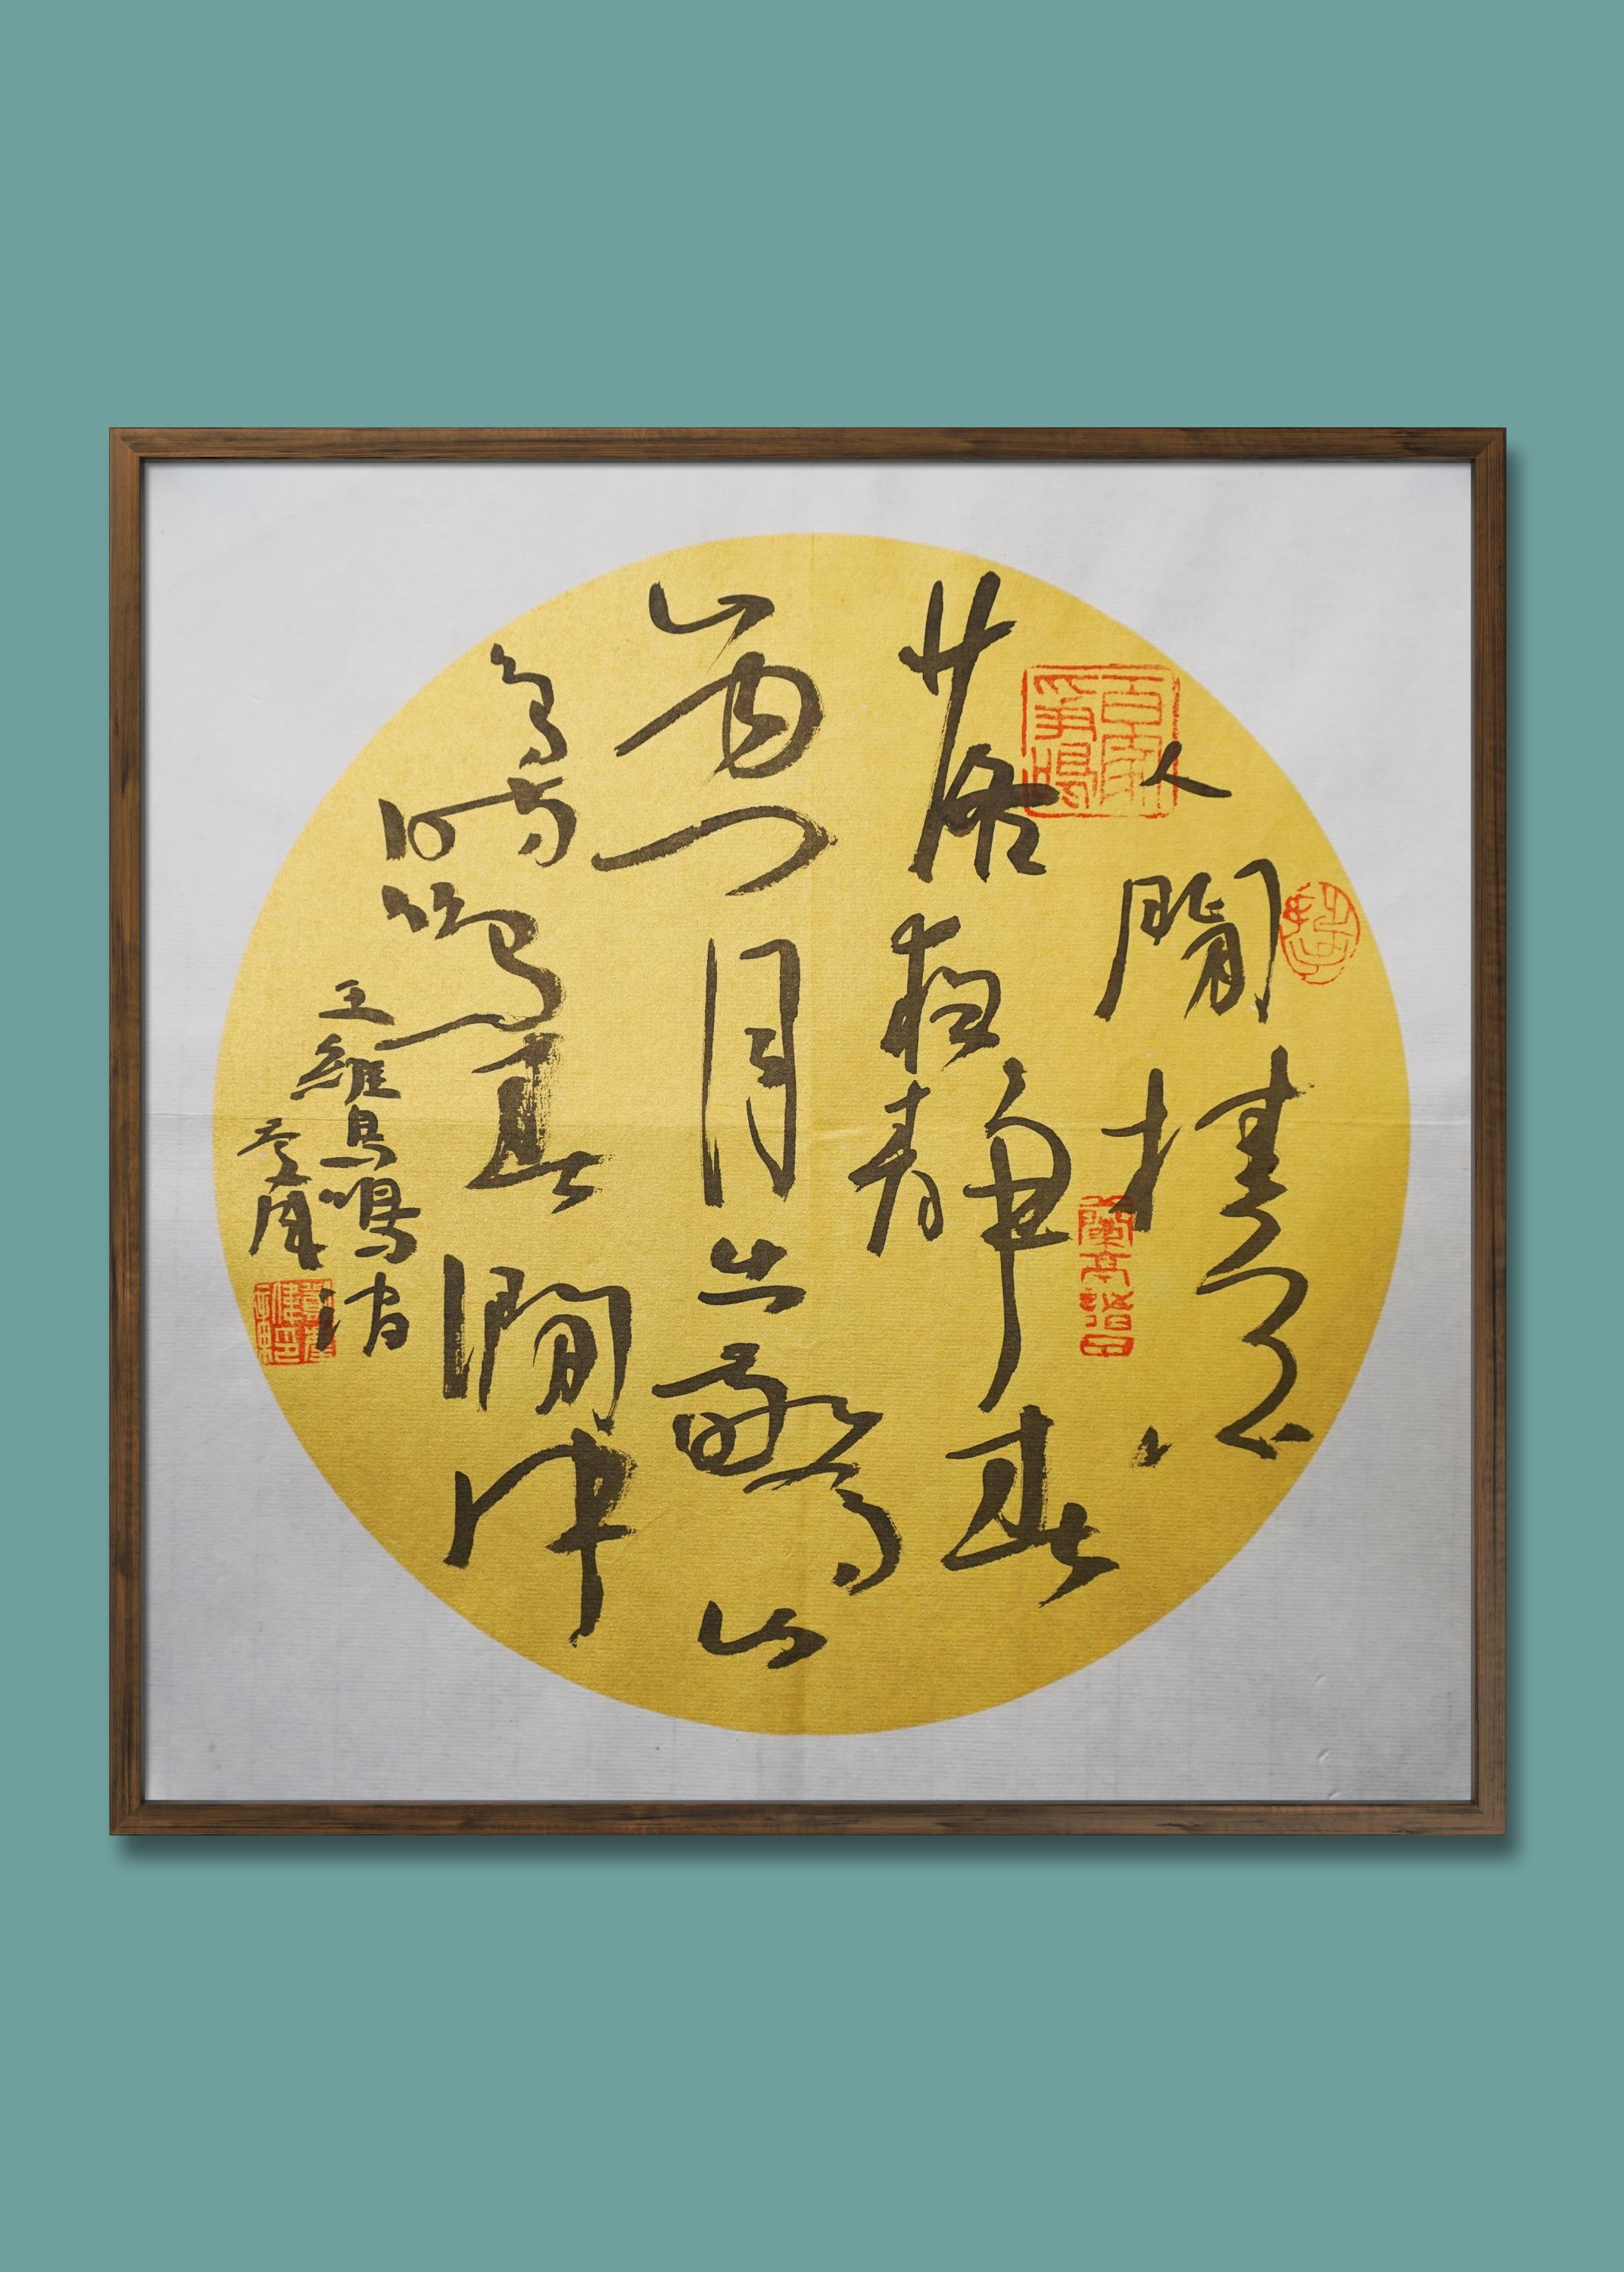 人閒桂花
落夜靜春
山空月出驚山
鳥時鳴春澗中
王維鳥鳴澗
百家爭鳴